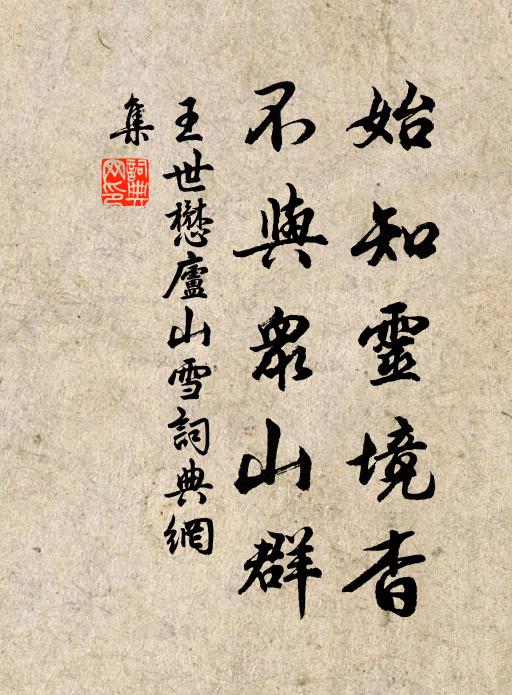 始知靈境杳
不與衆山群
王世懋廬山雪詞典網
集
詞典網印